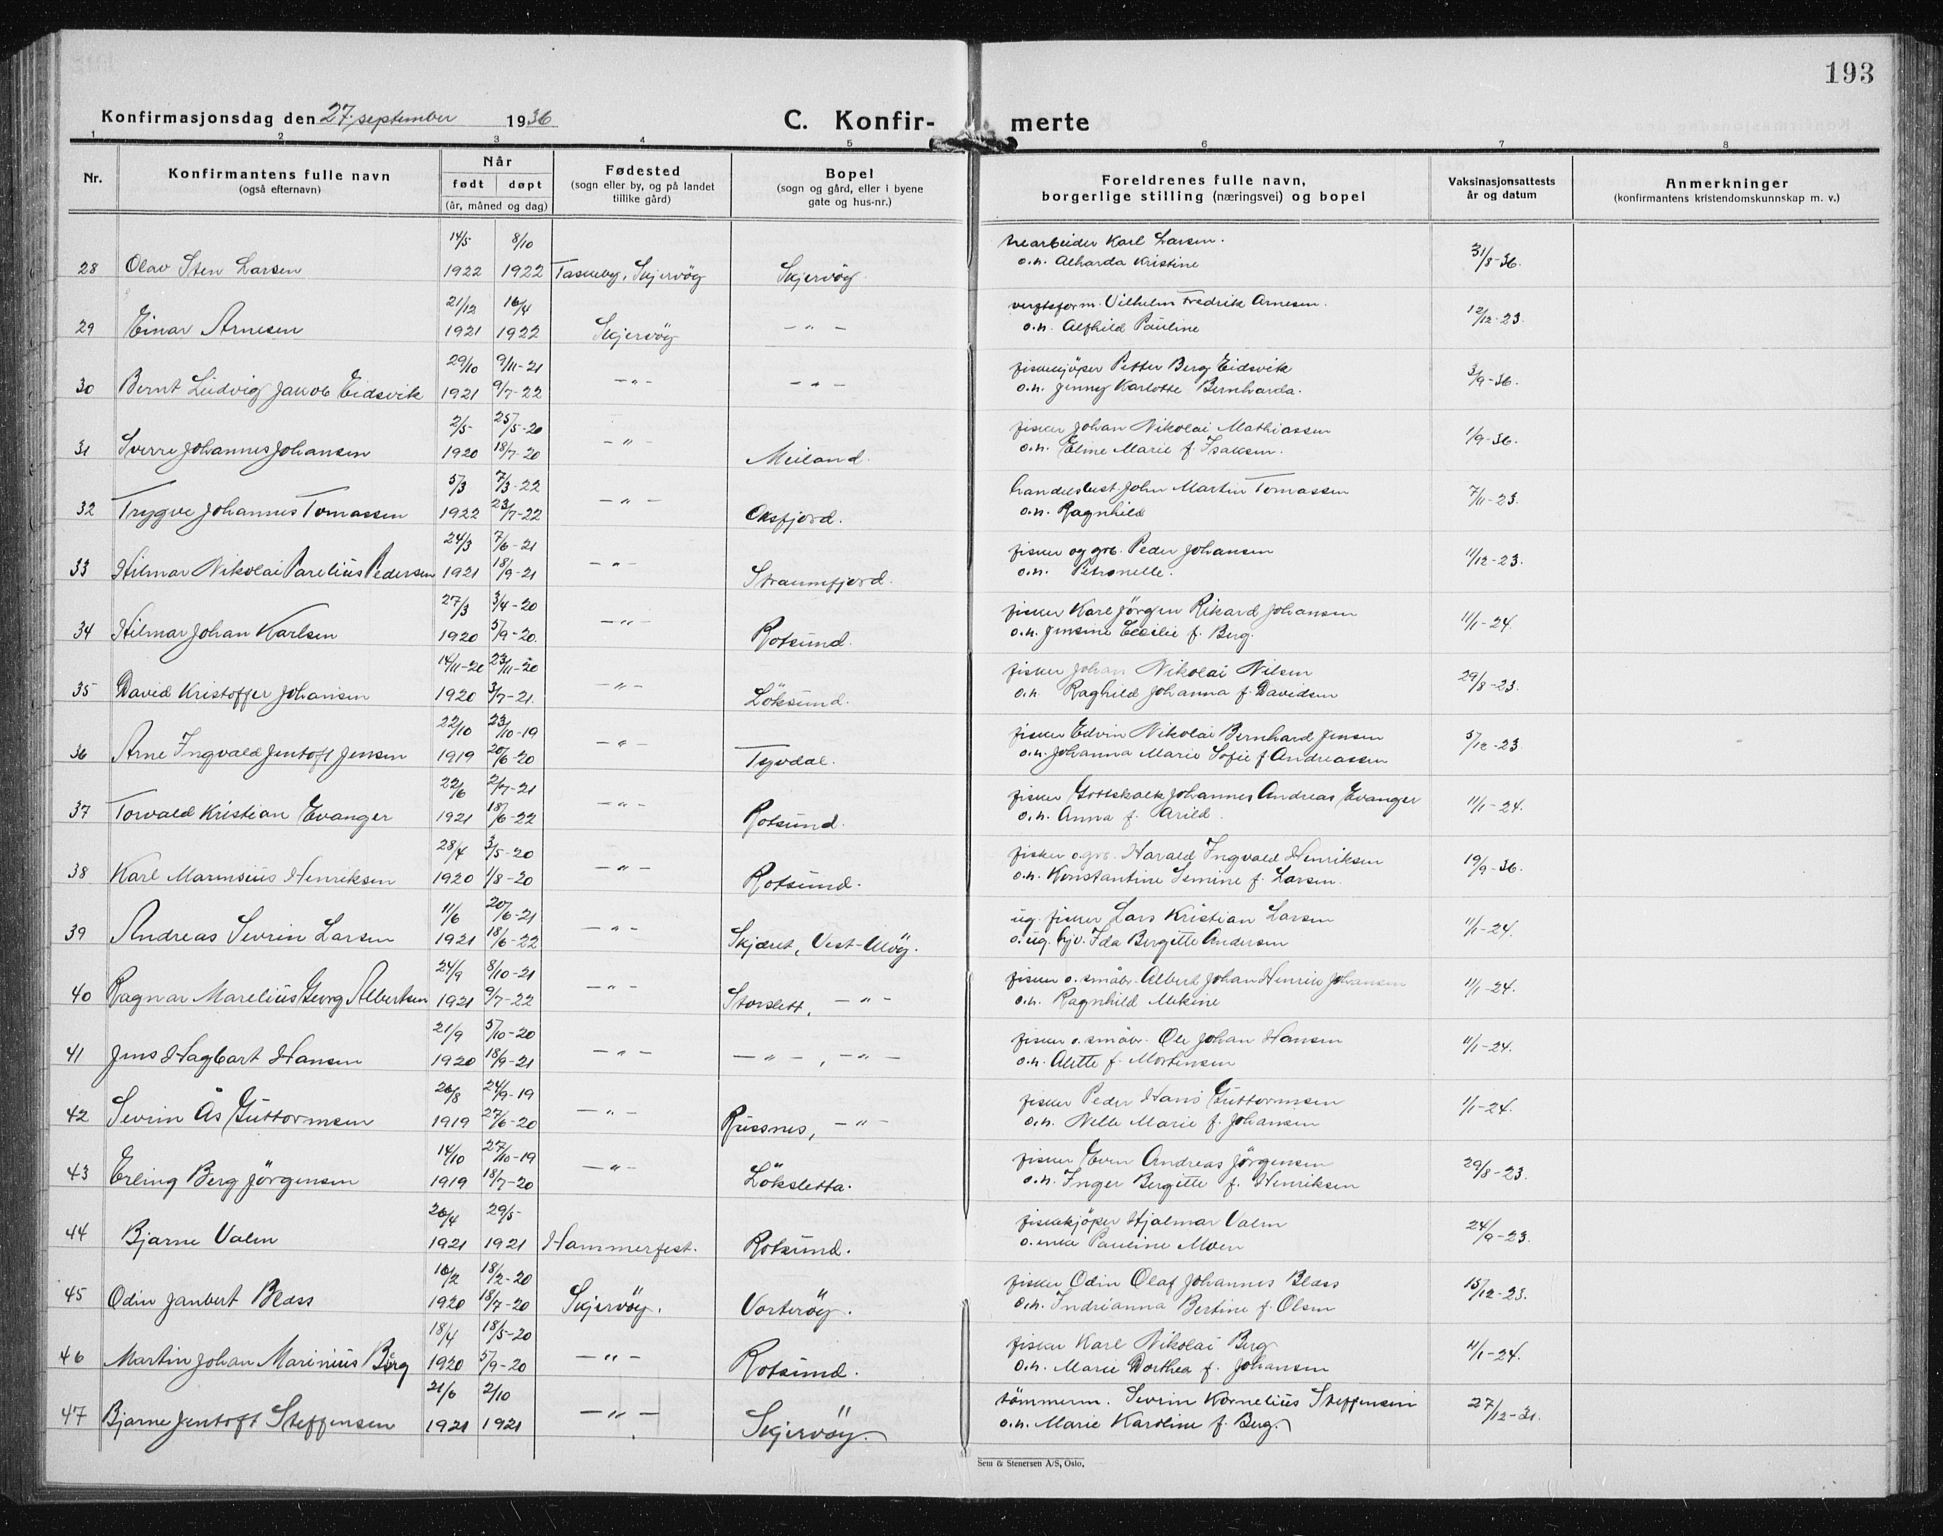 193
Konfirmasjonsdag den 27. september 1936 C. Konfir- merte
1 2 3 4 5 6 7 8
Nr. Konfirmantens fulle navn (også efternavn) Når født døpt (år, måned og dag) Fødested (sogn eller by, og på landet tillike gård) Bopel (sogn og gård, eller i byene gate og hus-nr.) Foreldrenes fulle navn, borgerlige stilling (næringsvei) og bopel Vaksinasjonsattests år og datum Anmerkninger (konfirmantens kristendomskunnskap m. v.)
14/5 8/10 Karl Larsen.
28 Olav Sten Larsen 1922 1922 Skjervöy Skjervöy o.h. Alharda Kristine 31/8-36.
21/12 16/4 Vilhelm Fredrik Arnesen.
29 Einar Arnesen 1921 1922 Skjervöy - " - o.h. Alfhild Pauline 12/12-23.
29/10 9/11-21 fiskekjöper Petter Berg Eidsvik
30 Bernt Ludvig Jakob Eidsvik 1921 9/7-22 - " - - " - o.h. Jenny Karlotte Bernharda. 3/9-36.
2/5- 25/5-20 fisker Johan Nikolai Mathiassen
31 Sverre Johannes Johansen 1920 18/7-20 - " - Meiland. o.h. Eline Marie f. Isaksen. 1/9-36.
5/3 7/3-22 handelsbest. John Martin Tomassen
32 Trygve Johannes Tomassen 1922 23/7-22 - " - Oksfjord. o.h. Ragnhild 7/11-23.
24/3 7/6-21 fisker og grb. Peder Johansen
33 Hilmar Nikolai Parelius Pedersen 1921 18/9-21 - " - Straumfjord. o.h. Petronelle. 11/12-23.
27/3 3/4-20 fisker Karl Jörgen Rikard Johansen
34 Hilmar Johan Karlsen 1920 5/9-20. - " - Rotsund. o.h. Jensine Cecilie f. Berg. 11/1-24.
14/11-20 23/11-20 fisker Johan Nikolai Nilsen
35 David Kristoffer Johansen 1920 3/7-21. - " - Löksund. o.h. Raghild Johanna f. Davidsen 29/8-23.
22/10 23/10-19 fisker Edvin Nikolai Bernhard Jensen
36 Arne Ingvald Jentoft Jensen 1919 20/6-20 - " - Tyvdal. o.h. Johanna Marie Sofie f Andreassen 5/12-23.
22/6 2/7-21 fisker Gottskalk Johannes Andreas Evanger
37 Torvald Kristian Evanger 1921 18/6-22 - " - Rotsund. o.h. Anna f. Arild. 11/1-24.
28/4 3/5-20 fisker o.grb. Harald Ingvald Henriksen
38 Karl Marensius Henriksen 1920 1/8-20 - " - Rotsund. o.h. Konstantine Semine f. Larsen. 19/9-36.
11/6 20/6-21 ug. fisker Lars Kristian Larsen
39 Andreas Sevrin Larsen 1921 18/6-22 - " - Skjæret, Vest-Ulvöy. o. ug. hjv. Ida Bergitte Andersen 11/1-24.
24/9 8/10-21 fisker o. småbr. Albert Johan Henrik Johansen
40 Ragnar Marelius Georg Albertsen 1921 9/7-22 - " - Storslett, - " - o.h. Ragnhild Mekine 11/1-24.
21/9 5/10-20 fisker o. småbr. Ole Johan Hansen
41 Jens Hagbart Hansen 1920 18/9-21 - " - - " - , - " - o.h. Alette f. Mortensen 11/1-24.
26/8 24/9-19 fisker Peder Hans Guttormsen
42 Sevrin Ås Guttormsen 1919 27/6-20 - " - Russnes, - " - o.h. Nelle Marie f. Johansen 1/1-24.
14/10 27/10-19 fisker Even Andreas Jörgensen
43 Erling Berg Jörgensen 1919 18/7-20 - " - Löksletta. o.h. Inger Bergitte f. Henriksen 29/8-23.
26/4 29/5- fiskekjöper Hjalmar Valen
44 Bjarne Valen 1921 1921 Hammerfest. Rotsund. o. enke Pauline Moen 24/9-23.
16/2 18/2-20 fisker Odin Olaf Johannes Blæss
45 Odin Janbert Blæss 1920 18/7-20 Skjervöy. Vorteröy. o.h. Indrianna Bertine f. Olsen 15/12-23.
18/4 18/5-20 fisker Karl Nikolai Berg
46 Martin Johan Marinius Berg 1920 5/9-20 - " - Rotsund. o.h. Marie Dorthea f. Johansen 11/1-24.
21/6 2/10 tömmerm. Sevrin Kornelius Steffensen
47 Bjarne Jentoft Steffensen 1921 1921 - " - Skjervöy. o.h. Marie Karoline f. Berg. 27/12-31.
Sem & Stenersen A/S, Oslo.